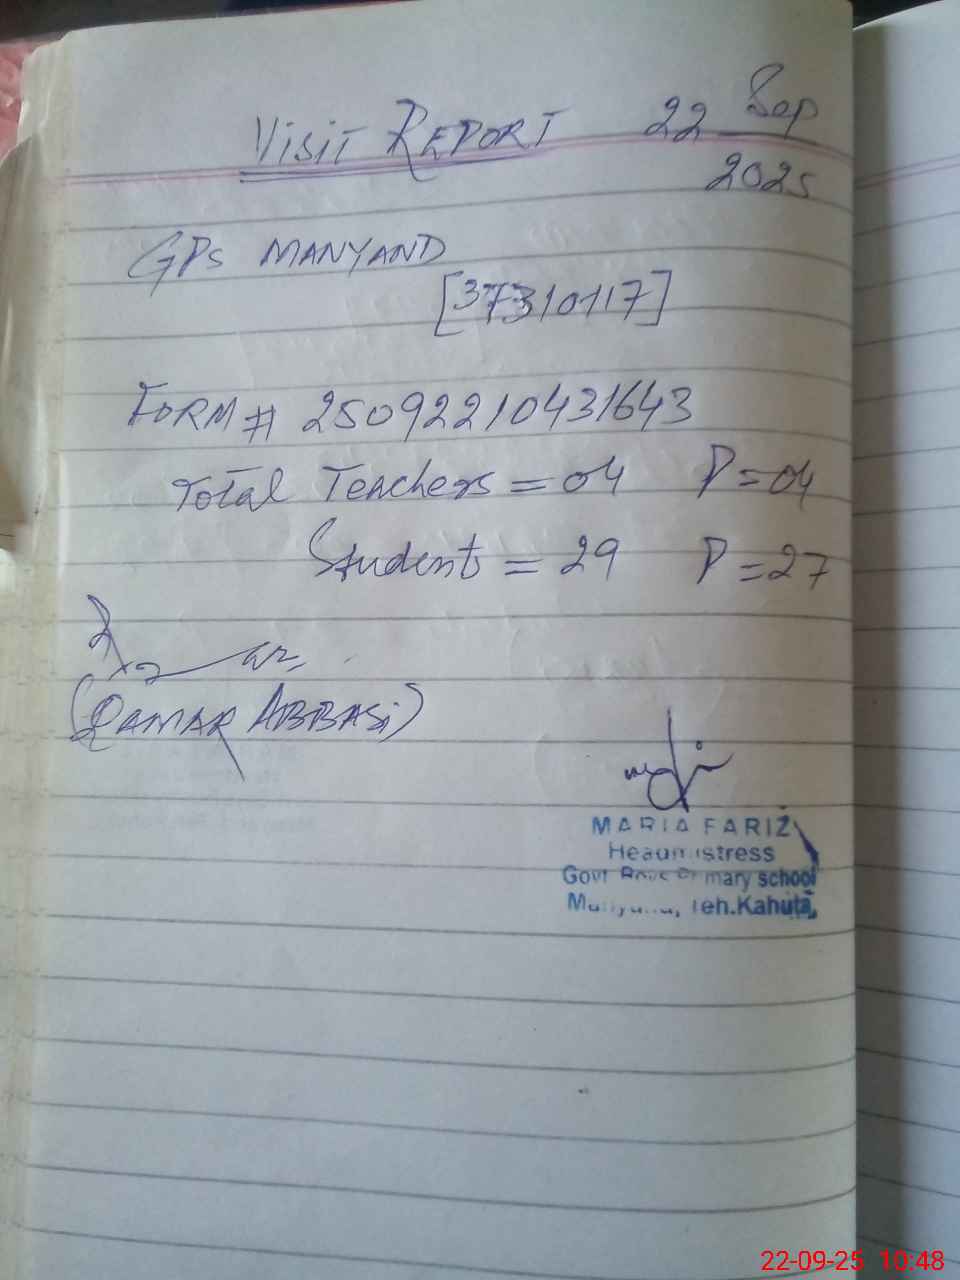 VISIT REPORT 22 Sep
2025
GPS MANYAND
[37310117]
FORM # 25092210431643
Total Teachers = 04 P = 04
Students = 29 P = 27
(QAMAR ABBASi)
MARIA FARIZ
Headmistress
Govt Boys Primary school
Teh.Kahuta,
22-09-25 10:48